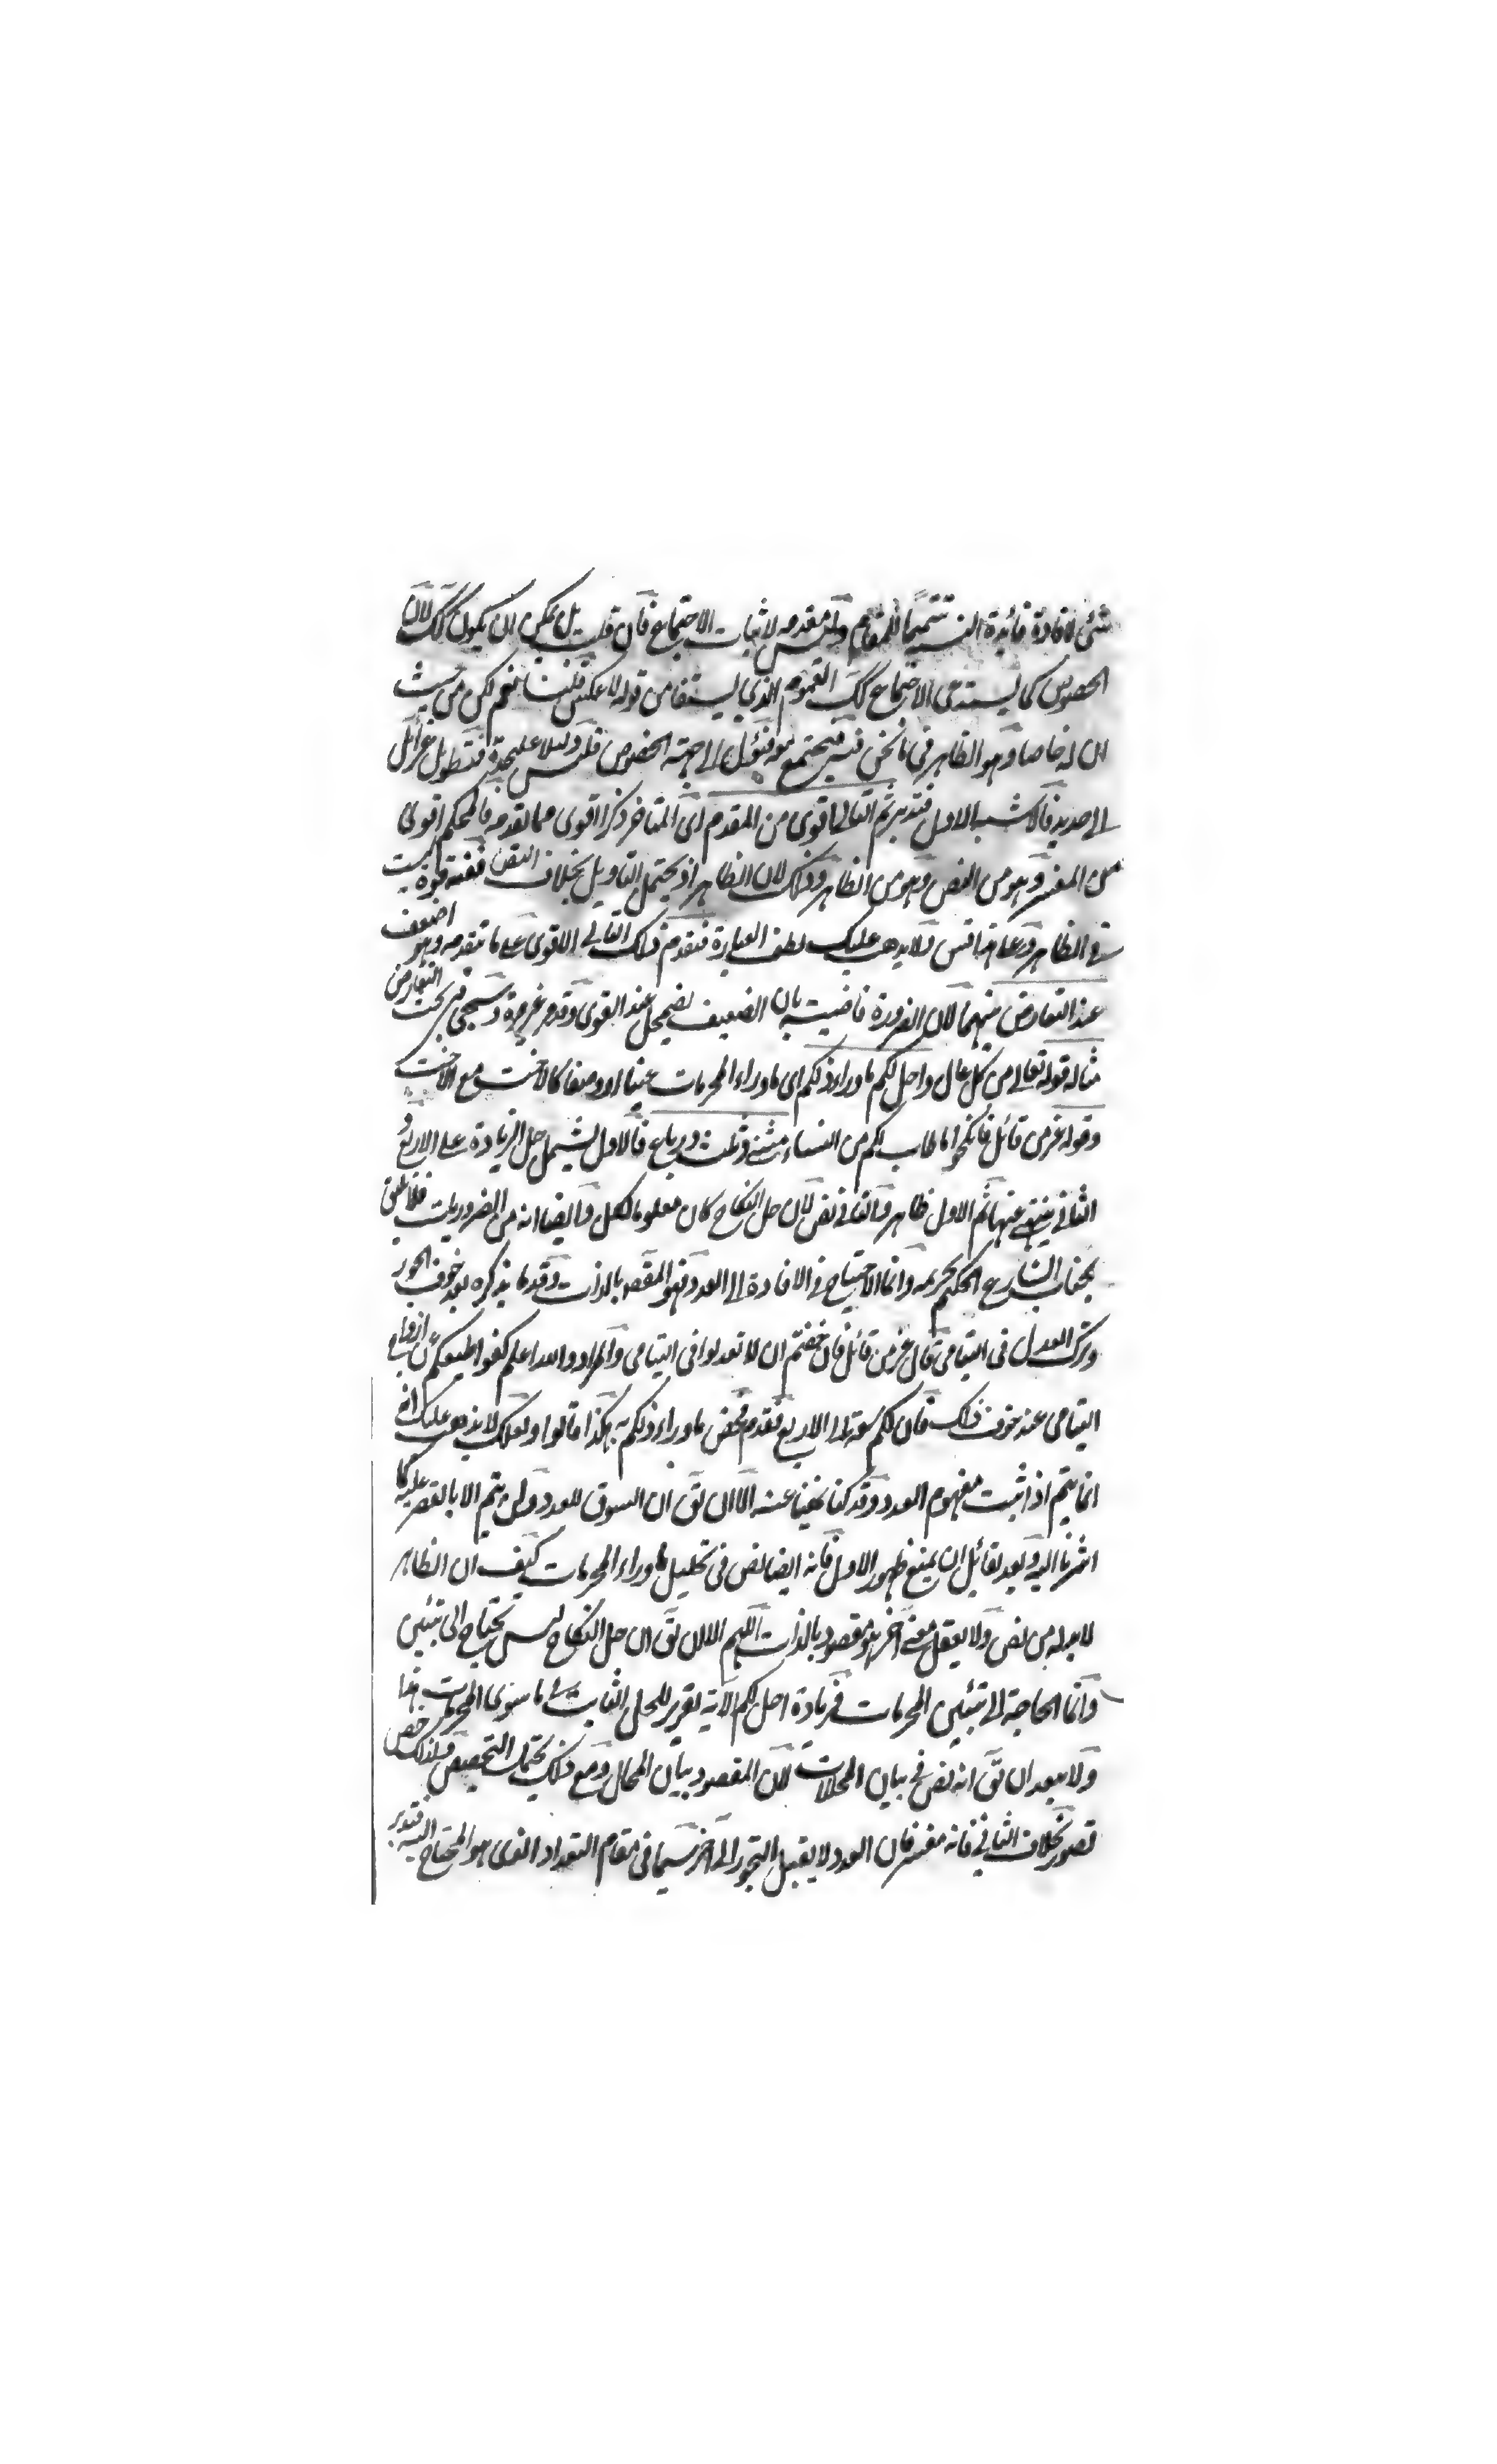 شئ لافادة فائدة التفسير تتميما للمقام وليس مقدمه لاثبات الاجتماع فان قلت بل يمكن ان يكون كك لان
الخصوص كما يستدعى الاجتماع كك العموم الذى يستفاد من قوله لا عكس قلت نعم لكن من حيث
ان له خاصا وهو الظاهر فى ما نحن فيه فيجتمع معه فيؤل الى جهة الخصوص فليس دليلا عليحدة
الى صديد فالاشبه الاول فتدبر ثم التالى اقوى من المقدم اى المتاخر ذكرا اقوى مما تقدمه فالمحكم اقوى
من المفسر وهو من النص وهو من الظاهر وذلك لان الظاهر اذ يحتمل التاويل بخلاف النص ففيه قوة ليست
فى الظاهر وعلى هذا قس ولا يذهب عليك لطف العبارة فتقدم ذلك التالى الاقوى على ما تقدمه وهو اضعف
عند التعارض بينهما لان الضرورة قاضية بان الضعيف يضمحل عند القوى وقد مر غير مرة وسيجئ فى بحث التعارض
مثاله قوله تعالى من كل عال واحل لكم ما وراء ذلكم اى ما وراء المحرمات عينا او وصفا كالاخت مع الاخت
وقوله عز من قائل فانكحوا ما طاب لكم من النساء مثنى وثلث ورباع فالاول يشمل حل الزيادة على الاربع و
الثانى ينتهى عنها ثم الاول ظاهر والثانى نص لان حل النكاح كان معلوما لكل وايضا انه من الضروريات فلا يليق
بجناب الشارع الحكيم تحريمه وانما الاحتياج فى الافادة الى العدد فهو المقصد بالذات وقد ما يذكره بعد خوف الجور
وترك العدل فى اليتامى قال عز من قائل فان خفتم ان لا تعدلوا فى اليتامى والمراد والله اعلم كفوا طبعكم عن ازواج
اليتامى عند خوف ذلك فان لكم سعة الى الاربع فقدم فخص ما وراء ذلكم به هكذا قالوا ولعلك لا يذهب عليك انه
انما يتم اذ اثبت مفهوم العدد وقد كنا نفينا عنه الا ان يق ان السوق للعدد ولن يتم الا بالقصر عليه كما
اشرنا اليه وبعد لقائل ان يمنع ظهور الاول فانه ايضا نص فى تحليل ما وراء المحرمات كيف ان الظاهر
لا بد له من نص ولا يعقل معنى اخر هو مقصود بالذات اللهم الا ان يق ان حل النكاح ليس يحتاج الى تبئين
وانما الحاجة الى تبئين المحرمات فزيادة احل لكم الاية تقرير للحل الثابت فى ما سوى المحرمات هذا
ولا يبعد ان يق انه نص فى بيان المحلات لان المقصود بيان المحال ومع ذلك يحتمل التخصيص ولذلك خص
تصور بخلاف الثانى فانه مفسر فان العدد لا يقبل التجوز الى اخر سيما فى مقام التعداد الذى هو المحتاج اليه فتدبر